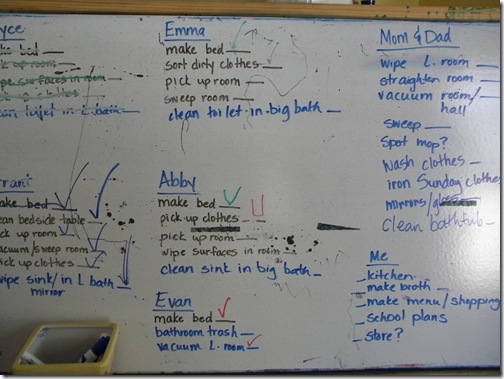 yce
make bed
wipe surfaces in room
clean toilet in L. bath
Emma
make bed
sort dirty clothes
pick up room
sweep room
clean toilet in big bath
Mom & Dad
wipe L. room
straighten room
vacuum room/
hall
sweep
spot mop?
wash clothes
iron Sunday clothes
mirrors/
clean bathtub
rrant
make bed
ean bedside table
ck up room
acuum/sweep room
pick up clothes
wipe sink/in L bath
mirror
Abby
make bed
pick up clothes
pick up room
wipe surfaces in room
clean sink in big bath
Evan
make bed
bathroom trash
vacuum L. room
Me
kitchen
make broth
make menu/shopping
school plans
store?